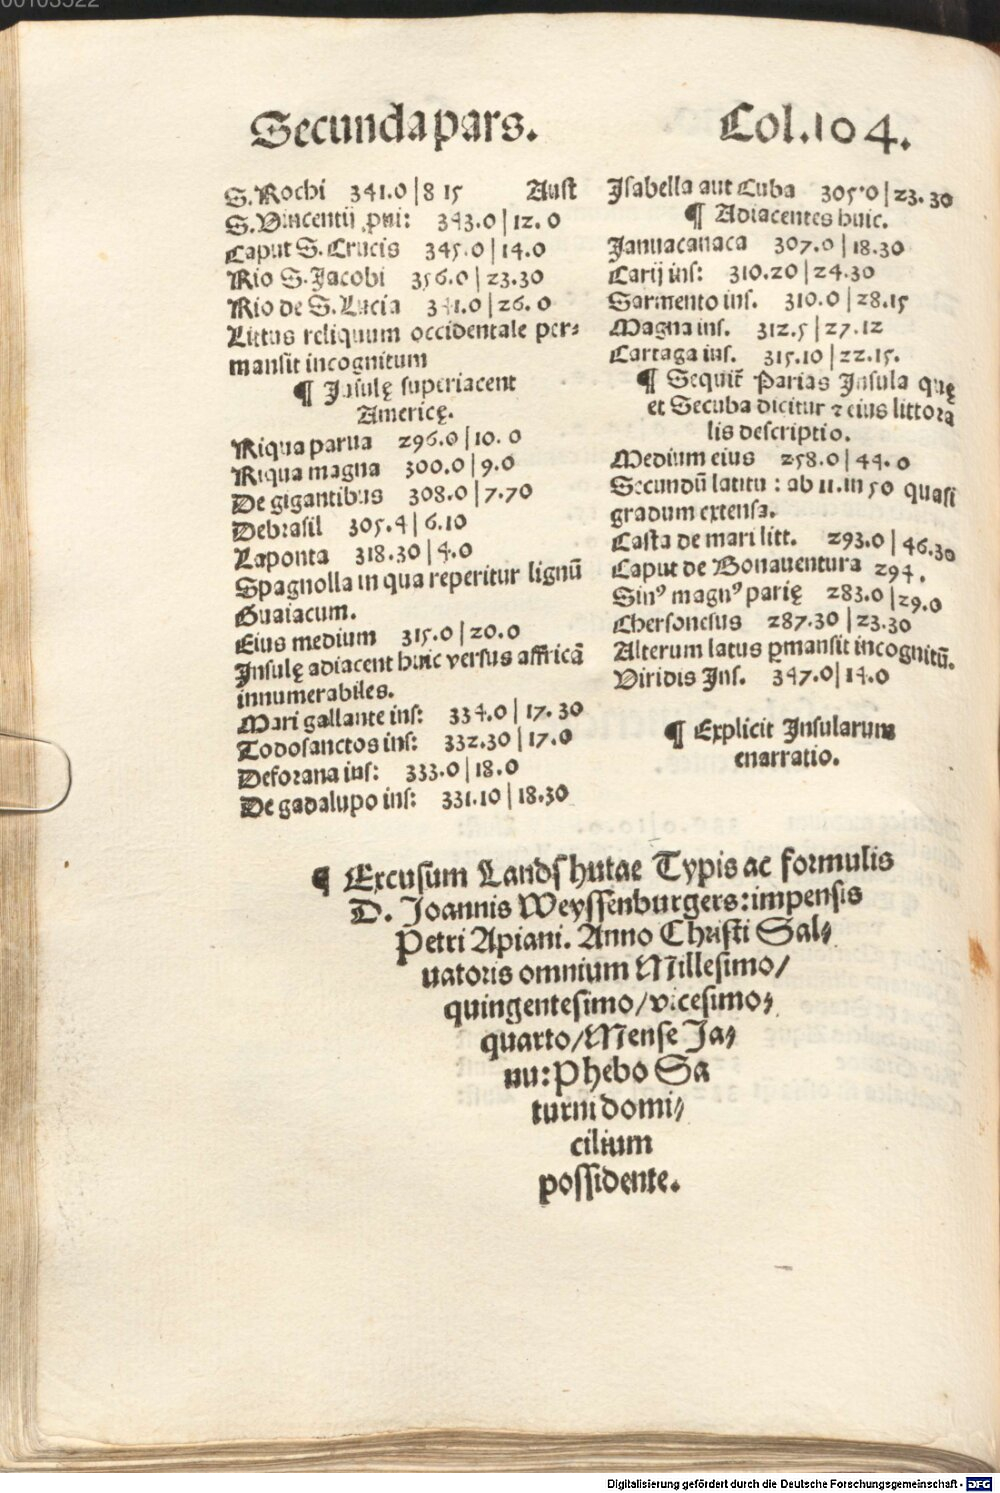 Secunda pars. Col. 104.
S. Rochi 341.0 | 8 15 Aust
S. Vincentij ꝓui: 343.0 | 12. 0
Caput S. Crucis 345.0 | 14.0
Rio S. Jacobi 356.0 | 23.30
Rio de S. Lucia 341.0 | 26. 0
Littus reliquum occidentale per⸗
mansit incognitum
¶ Insulę superiacent
Americę.
Riqua parua 296.0 | 10. 0
Riqua magna 300.0 | 9.0
De gigantibus 308.0 | 7.70
Debrasil 305.4 | 6.10
Laponta 318.30 | 4.0
Spagnolla in qua reperitur lignū
Guaiacum.
Eius medium 315.0 | 20.0
Insulę adiacent huic versus affricā
innumerabiles.
Mari gallante ins: 334.0 | 17. 30
Todosanctos ins: 332.30 | 17.0
Deforana ins: 333.0 | 18.0
De gadalupo ins: 331.10 | 18.30
Isabella aut Cuba 305.0 | 23. 30
¶ Adiacentes huic.
Januacanaca 307.0 | 18.30
Carij ins: 310.20 | 24.30
Sarmento ins. 310.0 | 28.15
Magna ins. 312.5 | 27.12
Cartaga ins. 315.10 | 22.15.
¶ Sequit᷑ Parias Insula quę
et Secuba dicitur ⁊ eius littora
lis descriptio.
Medium eius 258.0 | 44. 0
Secundū latitu : ab 11. in 50 quasi
gradum extensa.
Casta de mari litt. 293.0 | 46.30
Caput de Bonauentura 294.
Sinꝰ magnꝰ parię 283.0 | 29.0
Chersonesus 287.30 | 23.30
Alterum latus ꝑmansit incognitū.
Viridis Ins. 347.0 | 14.0
¶ Explicit Insularum
enarratio.
¶ Excusum Landshutae Typis ac formulis
D. Joannis Weyssenburgers: impensis
Petri Apiani. Anno Christi Sal⸗
uatoris omnium Millesimo/
quingentesimo/vicesimo⸗
quarto/Mense Ja⸗
nu: Phebo Sa
turni domi⸗
cilium
possidente.
Digitalisierung gefördert durch die Deutsche Forschungsgemeinschaft - DFG